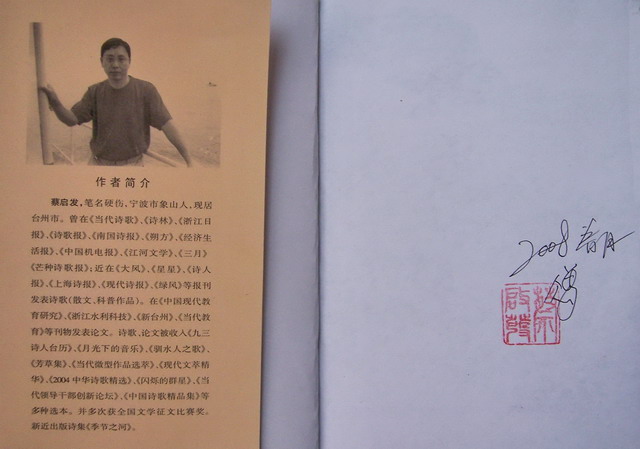 作者简介
蔡启发,笔名硬伤,宁波市象山人,现居
台州市。曾在《当代诗歌》、《诗林》、《浙江日
报》、《诗歌报》、《南国诗报》、《朔方》、《经济生
活报》、《中国机电报》、《江河文学》、《三月》、
《芒种诗歌报》;近在《大风》、《星星》、《诗人
报》、《上海诗报》、《现代诗报》、《绿风》等报刊
发表诗歌(散文、科普作品)。在《中国现代教
育研究》、《浙江水利科技》、《新台州》、《当代教
育》等刊物发表论文。诗歌、论文被收入《九三
诗人台历》、《月光下的音乐》、《驯水人之歌》、
《芳草集》、《当代微型作品选萃》、《现代文萃精
华》、《2004中华诗歌精选》、《闪烁的群星》、《当
代领导干部创新论坛》、《中国诗歌精品集》等
多种选本。并多次获全国文学征文比赛奖。
新近出版诗集《季节之河》。
2008
蔡啟發